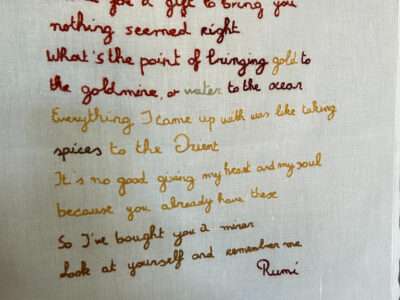 you a gift to bring you
nothing seemed right
What's the point of bringing gold to
the goldmine, or water to the ocean
Everything I came up with was like taking
spices to the Orient
It's no good giving my heart and my soul
because you already have these
So I've bought you a mirror
Look at yourself and remember me
Rumi